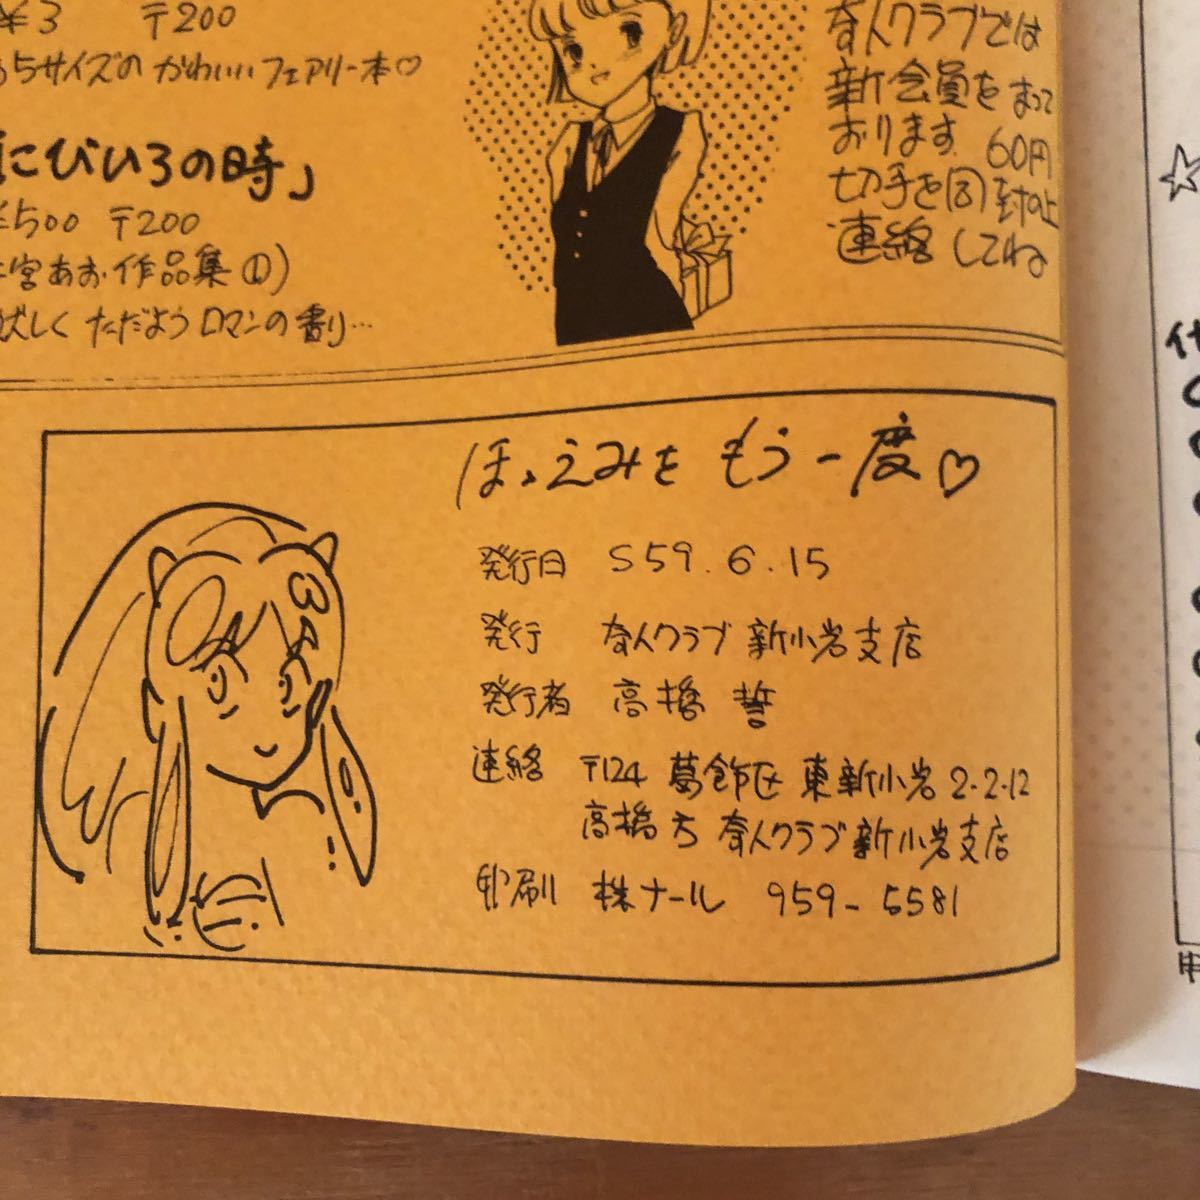 ¥3 〒200
5サイズの かわいいフェアリー本♡
「にびいろの時」
¥500 〒200
宮あお・作品集①)
しく ただようロマンの香り…
クラブでは
新会員を まって
おります 60円
切手を同封の上
連絡 してね
ほゝえみを もう一度♡
発行日 S59.6.15
発行 奇人クラブ 新小岩支店
発行者 高橋 誓
連絡 〒124 葛飾区 東新小岩2-2-12
高橋方 奇人クラブ新小岩支店
印刷 株ナール 959-5581